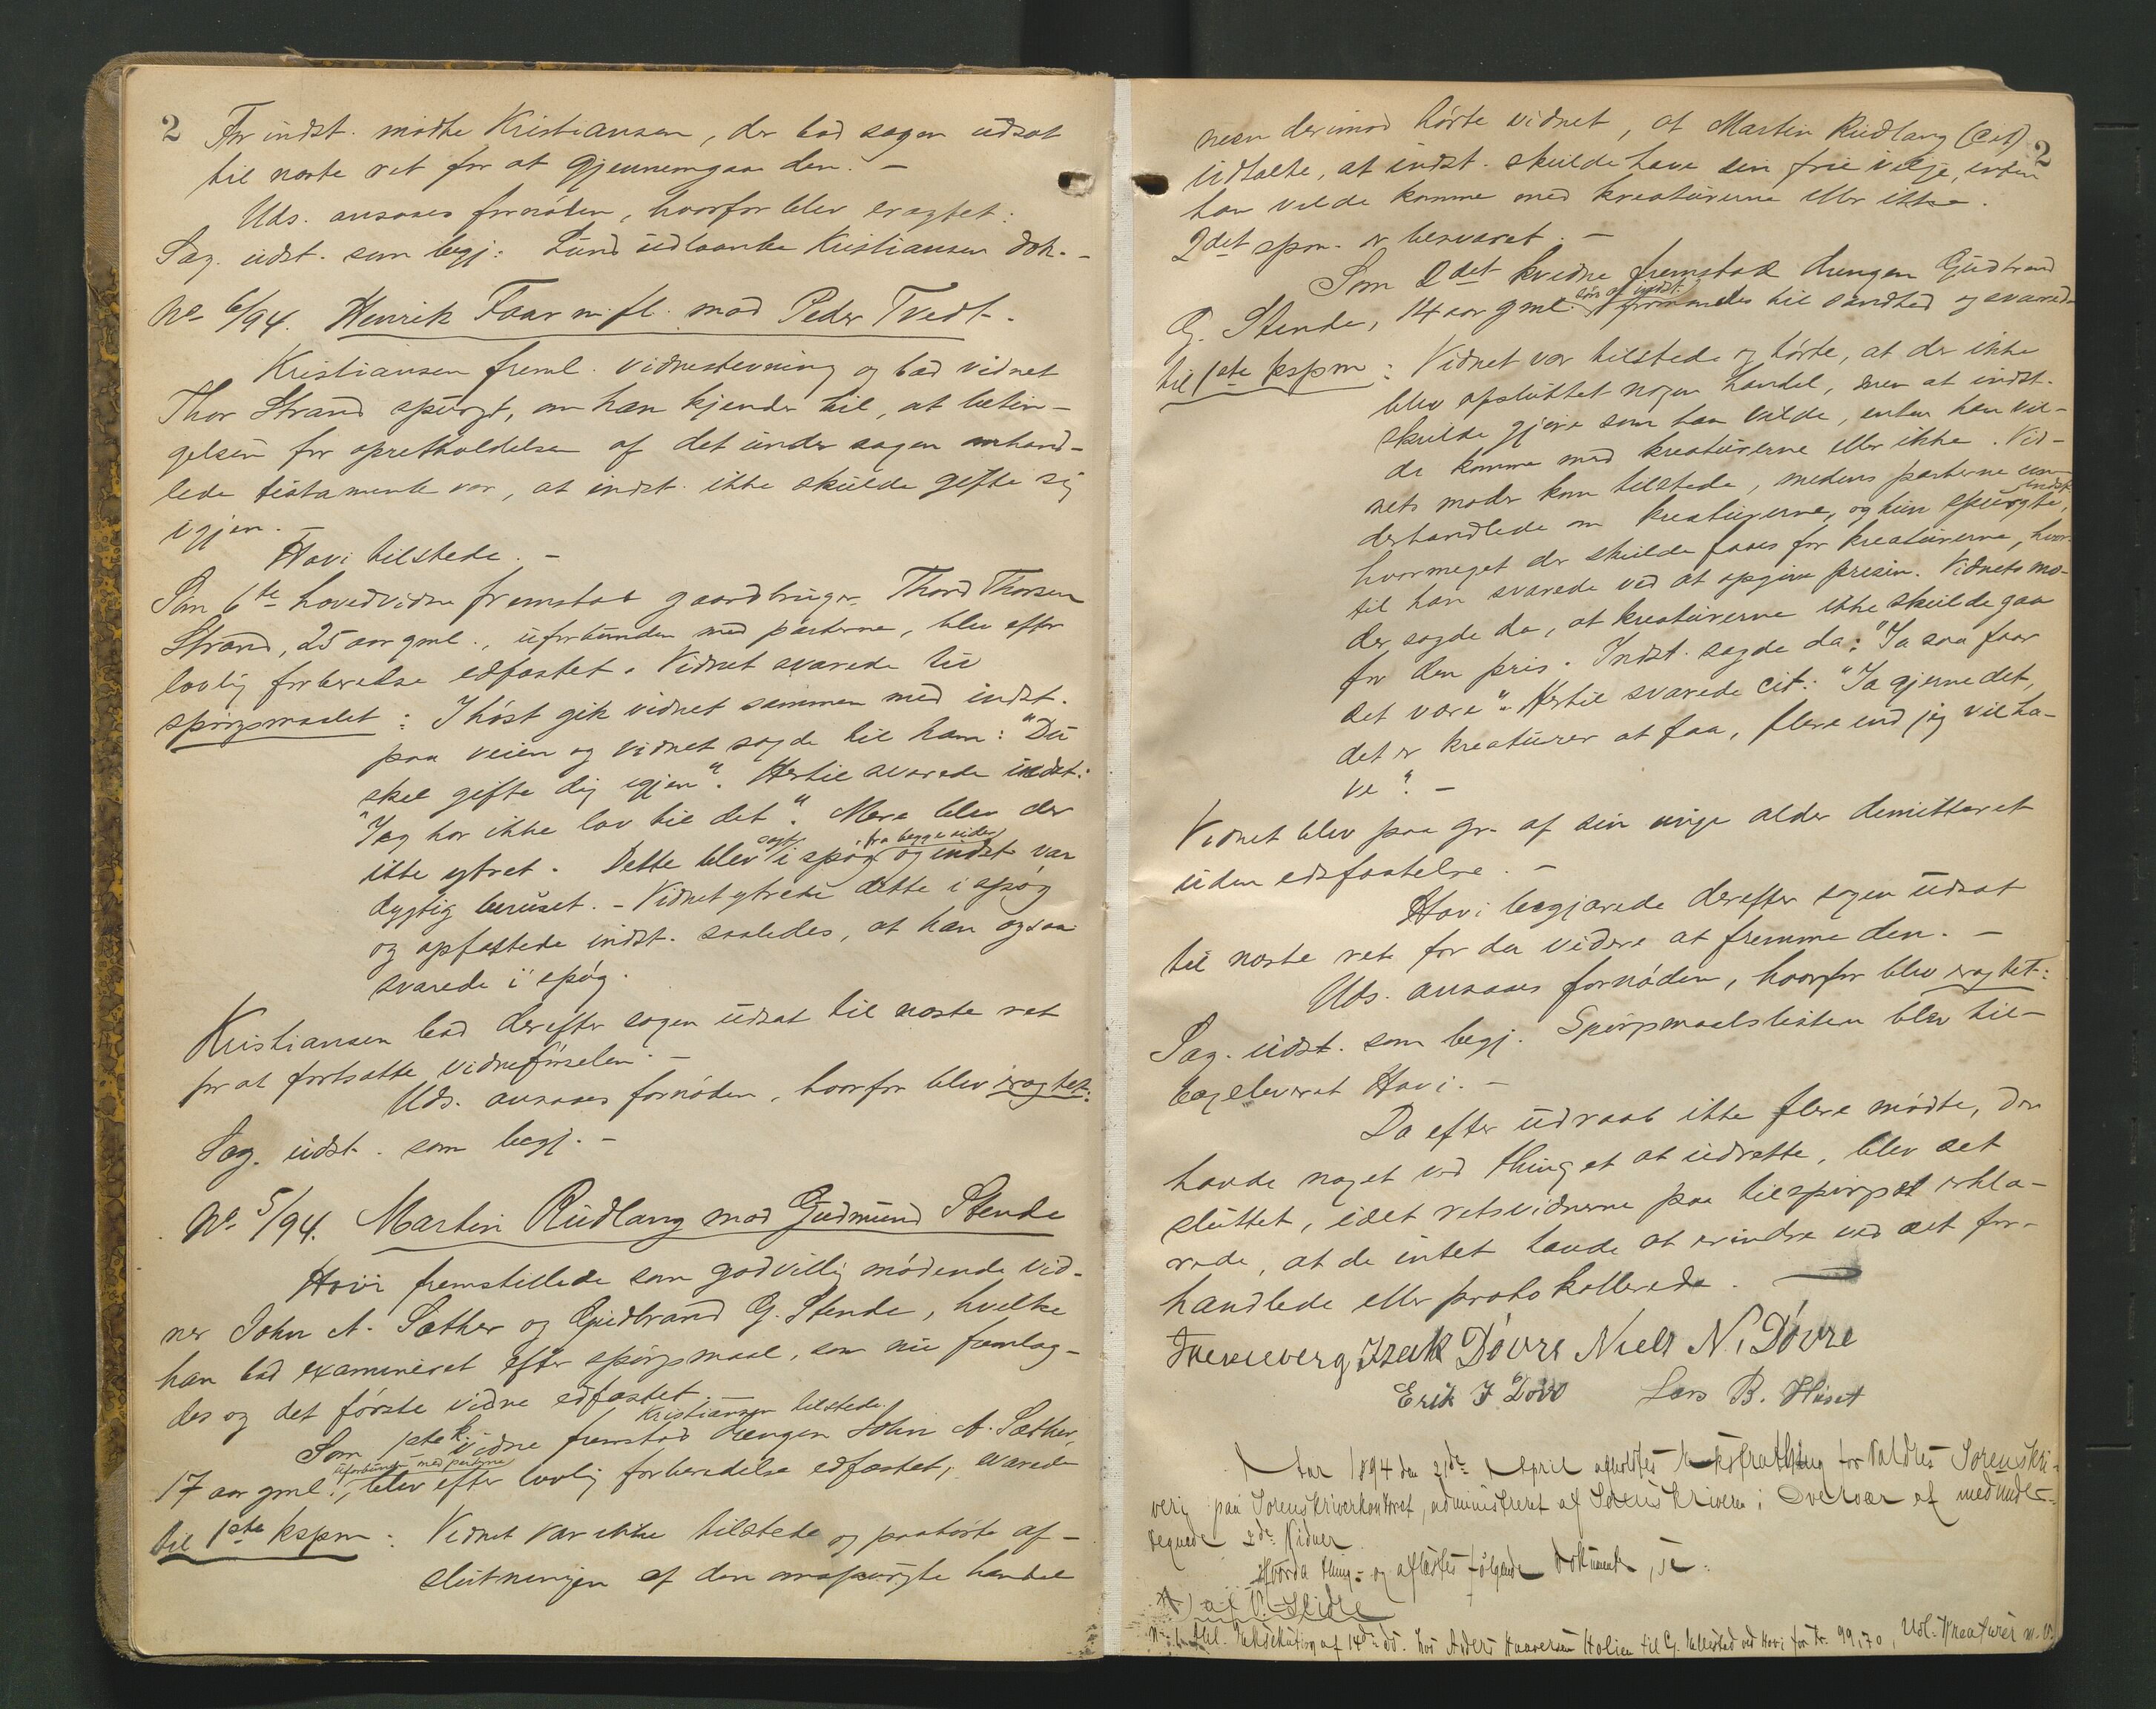 2
For indst. mødte Kristiansen, der bad sagen udsat
til næste ret for at gjennemgaa den. -
Uds. ansaaes fornøden, hvorfor blev eragtet:
Sag. udst. som begj: Lund udlaante Kristiansen dok. -
No 6/94. Henrik Faar m. fl. mod Peder Tvedt.
Kristiansen freml. vidnestevning og bad vidnet
Thor Strand spurgt, om han kjender til, at betin-
gelsen for opretholdelsen af det under sagen omhand-
lede testamente var, at indst. ikke skulde gifte sig
igjen. -
Hovi tilstede. -
Som 6te hovedvidne fremstod gaardbruger Thord Thorsen
Strand, 25 aar gml., uforbunden med parterne, blev efter
lovlig forberedelse edfæstet. Vidnet svarede til
spørgsmaalet: I høst gik vidnet sammen med indst.
paa veien og vidnet sagde til ham: "Du
skal gifte dig igjen". Hertil svarede indst:
"Jeg har ikke lov til det". Mere blev der
ikke ytret. Dette blev sagt i spøg fra begge sider og indst. var
dygtig beruset. - Vidnet ytrede dette i spøg
og opfattede indst. saaledes, at han ogsaa
svarede i spøg.
Kristiansen bad derefter sagen udsat til næste ret
for at fortsætte vidneførselen. -
Uds. ansaaes fornøden, hvorfor blev eragtet:
Sag. udst. som begj. -
No 5/94. Martin Rudlang mod Gudmund Stende
Hovi fremstillede som godvillig mødende vid-
ner John A. Sæther og Gudbrand G. Stende, hvilke
han bad examineret efter spørgsmaal, som nu fremlag-
des og det første vidne edfæstet. -
Kristiansen tilstede.
Som 1ste k.vidne fremstod drengen John A. Sæther,
17 aar gml., uforbunden med parterne, blev efter lovlig forberedelse edfæstet, svarede
til 1ste kspm: Vidnet var ikke tilstede og paahørte af-
slutningen af den omspurgte handel
2
men derimod hørte vidnet, at Martin Rudlang (cit)
udtalte, at indst. skulde have sin frie vilje, enten
han vilde komme med kreaturerne eller ikke.
2det spm. er besvaret. -
Som 2det k.vidne fremstod drengen Gudbrand
G. Stende, 14 aar gml. søn af indst. formanedes til sandhed og svarede
til 1ste kspm: Vidnet var tilstede og hørte, at der ikke
blev afsluttet nogen handel, men at indst.
skulde gjøre som han vilde, enten han vil-
de komme med kreaturerne eller ikke. Vid-
nets moder kom tilstede, medens parterne un-
derhandlede om kreaturerne, og hun spurgte indst.,
hvormeget der skulde faaes for kreaturerne, hvor-
til han svarede ved at opgive prisen. Vidnets mo-
der sagde da, at kreaturerne ikke skulde gaa
for den pris. Indst. sagde da: "Ja saa faar
det være". Hertil svarede cit: "Ja gjerne det,
det er kreaturer at faa, flere end jeg vil ha-
ve". -
Vidnet blev paa gr. af sin unge alder demitteret
uden edsfæstelse. -
Hovi begjærede derefter sagen udsat
til næste ret for da videre at fremme den. -
Uds. ansaaes fornøden, hvorfor blev eragtet:
Sag. udst. som begj. Spørgsmaalslisten blev til-
bageleveret Hovi. -
Da efter udraab ikke flere mødte, der
havde noget ved thinget at udrette, blev det
sluttet, idet retsvidnerne paa tilspørgsel erklæ-
rede, at de intet havde at erindre ved det for-
handlede eller protokollerede.
Isak Døvre Niels N. Døvre
Erik I Døvre Lars B. Huset
Aar 1894 den 21de April afholdtes Extrathing for Valdres Sorenskri-
veri paa Sorenskriverkontoret, administreret af Sorenskriveren i Overvær af medunder-
tegnede 2de Vidner.
Hvorda thing- og aflæstes følgende Dokumenter,
A)
No 1. Exekution af 14de ds. hos Anders Haaversen Holien til G. ved Hovi for Kr. 99,70, Udl. Kreaturer m. V.